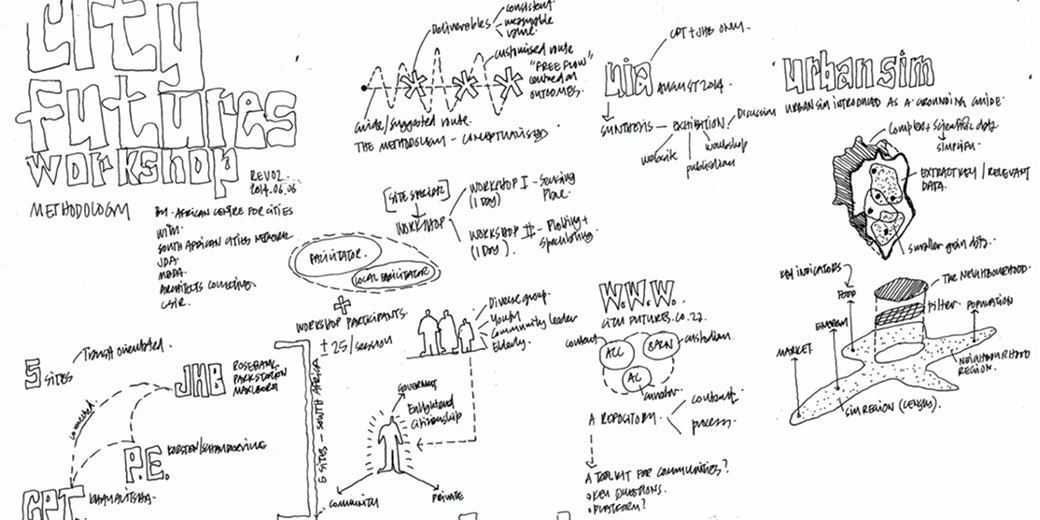 City
Futures
workshop
REV02.
2014.06.06
METHODOLOGY
BY - AFRICAN CENTRE FOR CITIES
WITH.
SOUTH AFRICAN CITIES NETWORK
JDA.
MBDA.
ARCHITECTS COLLECTIVE
CSIR.
Deliverables
consistent
measurable
value.
customised route
"FREE FLOW"
centred on
OUTCOMES.
Guide/suggested route.
THE METHODOLOGY - CONCEPTUALISED.
[SITE SPECIFIC]
WORKSHOP
WORKSHOP I - Sensing
(1 DAY) Place.
WORKSHOP II - Plotting +
(1 Day). Speculating.
FACILITATOR.
LOCAL FACILITATOR
+
WORKSHOP PARTICIPANTS.
± 25/session
Diverse group.
Youth
Community leader
Elderly.
5 SITES
Transit orientated.
connected.
JHB
ROSEBANK
PARKSTATION
MARLBORO
P.E.
KORSTEN/SCHAUDERVILLE
CPT
KHAYALITSHA.
5 SITES - SOUTH AFRICA
GOVERNMENT
Enlightened
citizenship
COMMUNITY
PRIVATE
uia
AUGUST 2014.
CPT + JHB ONLY.
SYNTHESIS - EXHIBITION
Discussion
website
workshop
publication
W.W.W.
CITY FUTURES.CO.ZA.
content
ACC
custodian.
AC
curator
A REPOSITORY.
content.
process.
A TOOLKIT FOR COMMUNITIES?
• KEY QUESTIONS.
• PLATFORM?
urban sim
URBANSIM INTRODUCED AS A GROUNDING GUIDE.
Complex + scientific data
simplify.
EXTRACT KEY / RELEVANT
DATA.
smaller grain data.
KEY INDICATORS
FOOD
MARKET.
THE NEIGHBOURHOOD.
Filter.
POPULATION
NEIGHBOURHOOD
REGION.
SIM REGION (CENSUS).